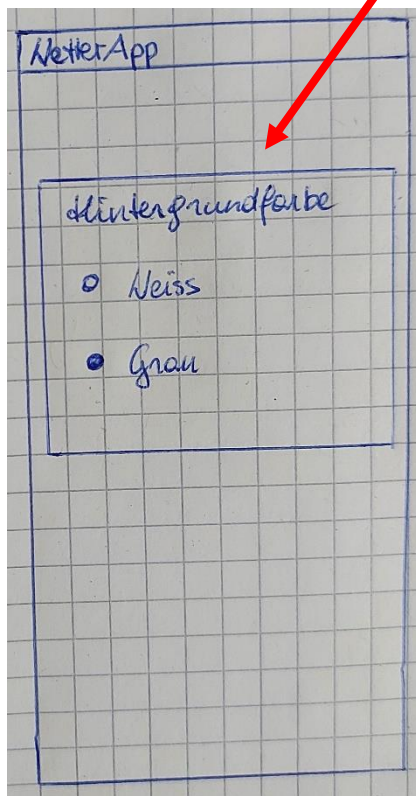 WetterApp
Hintergrundfarbe
Weiss
Grau